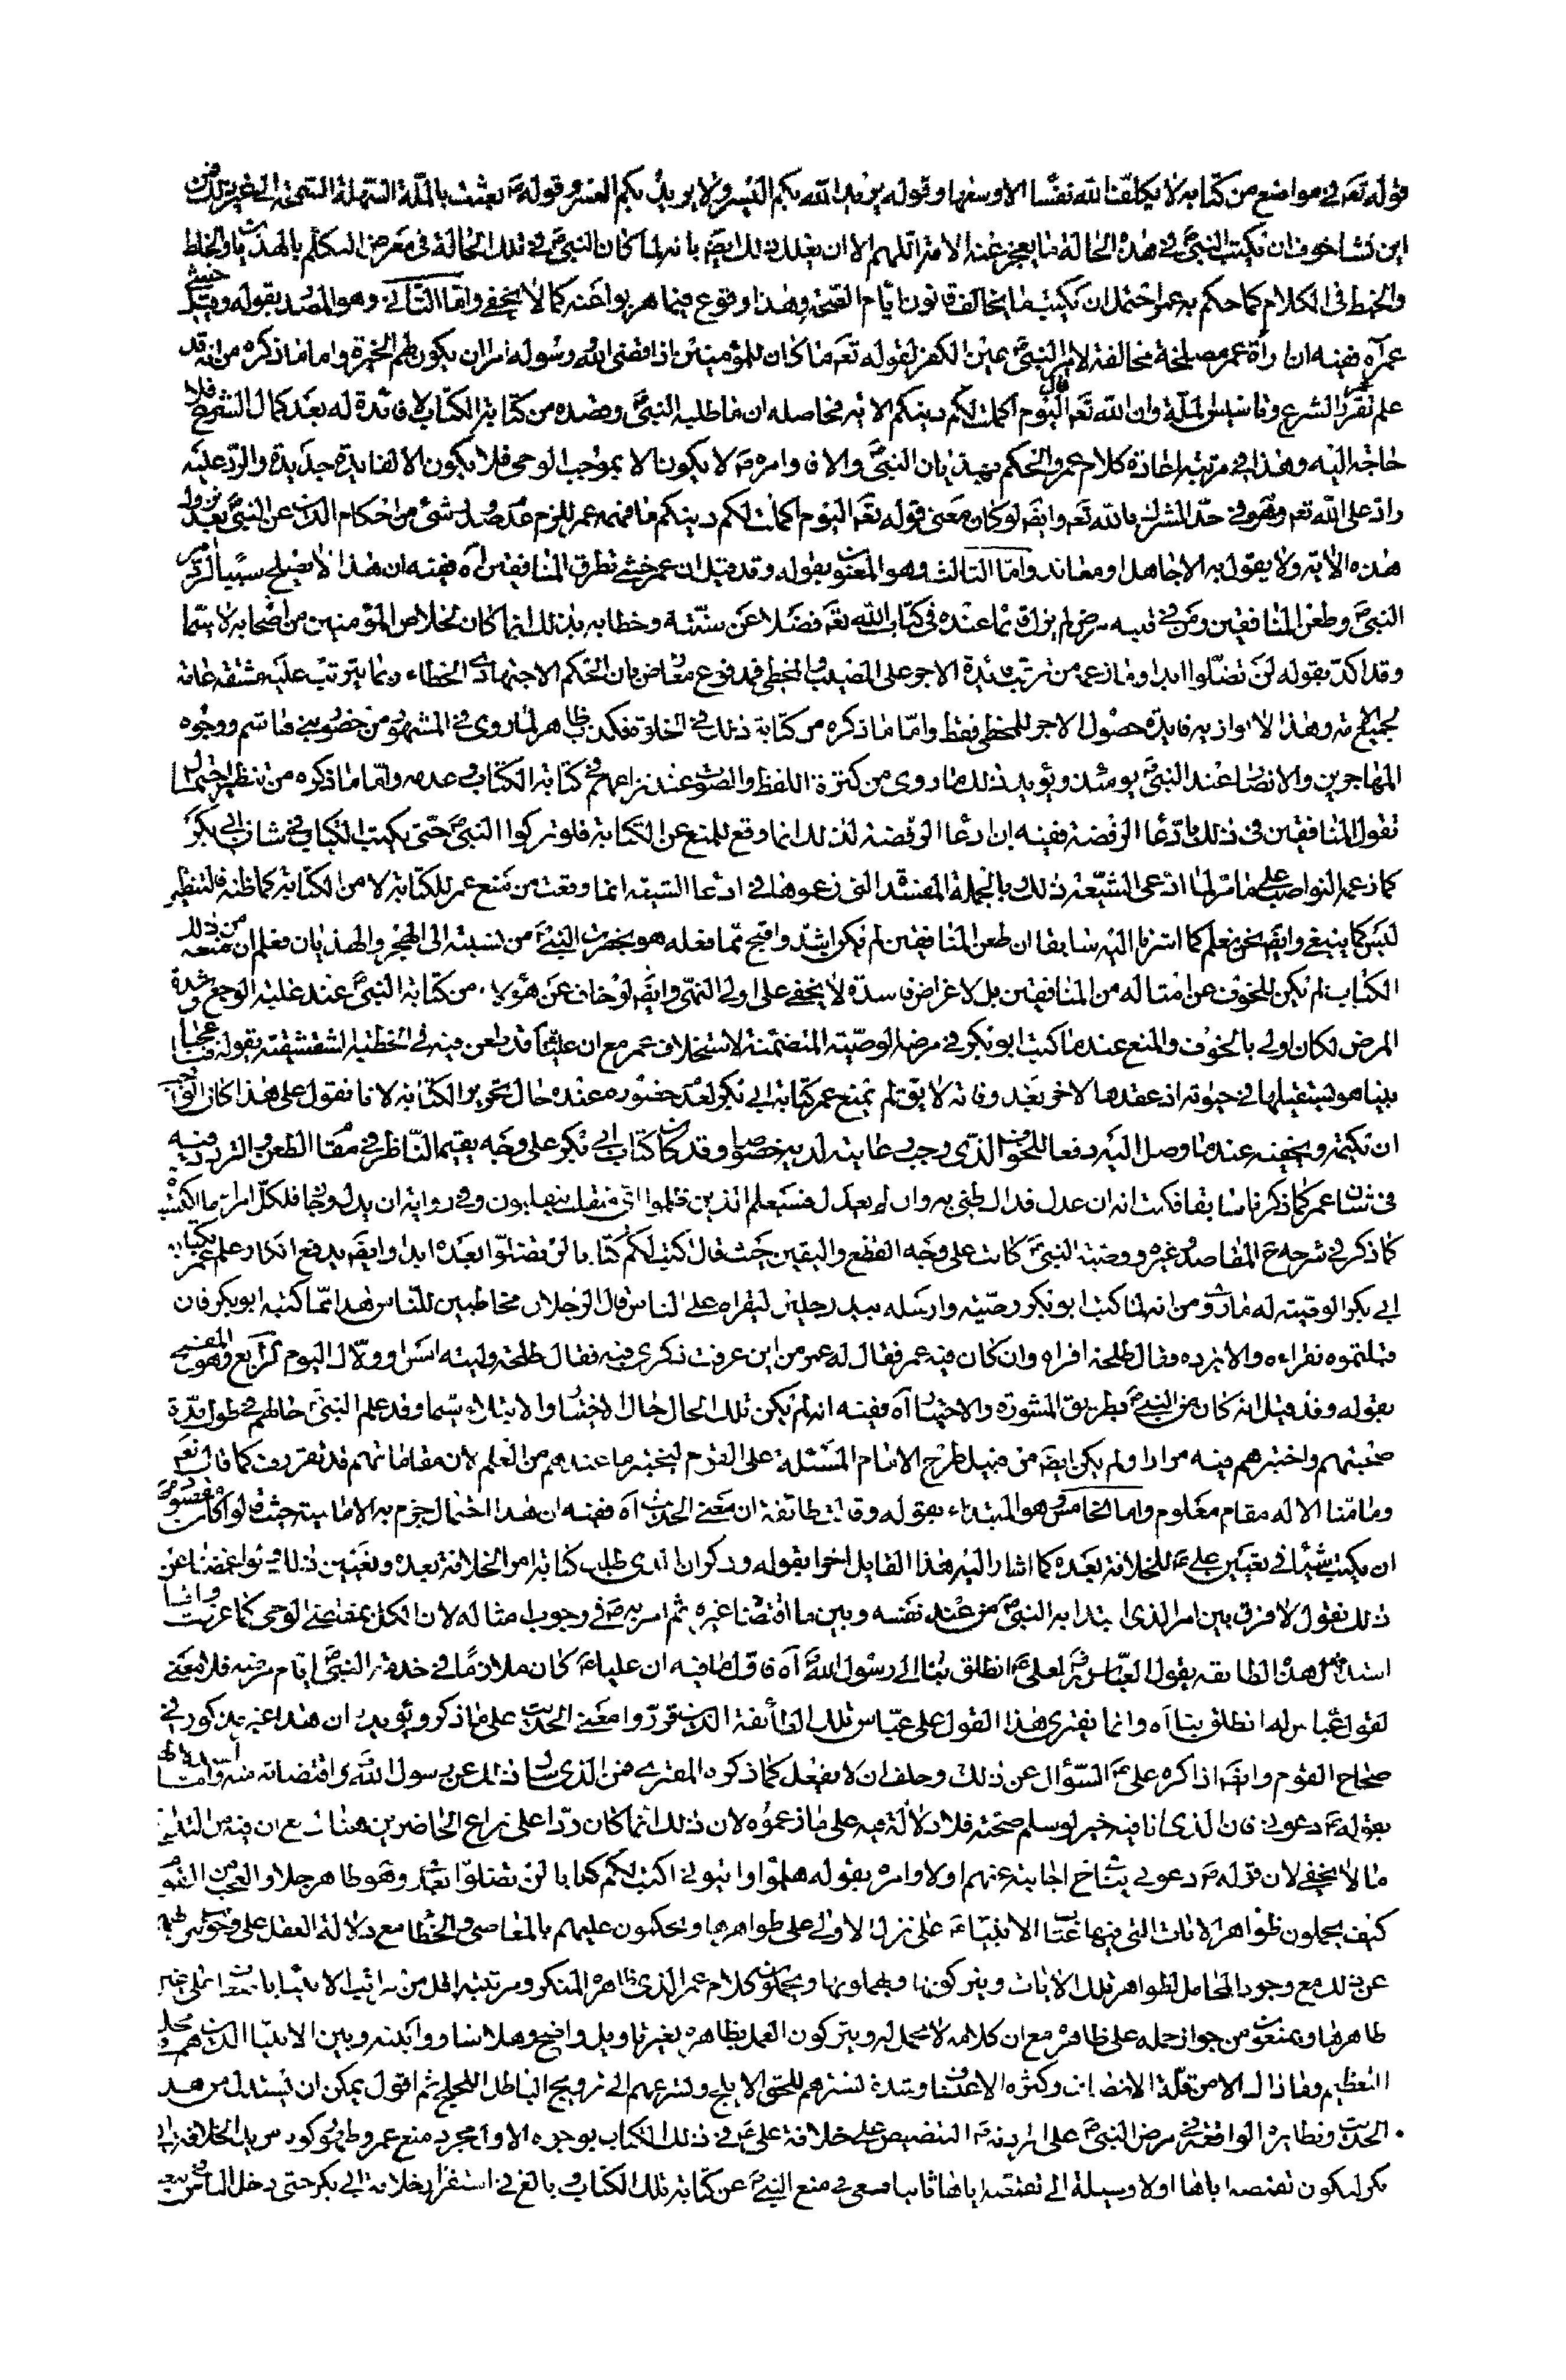 قوله تعه في مواضع من كتابه لا يكلف الله نفسا الا وسعها وقوله يريد الله بكم اليسر ولا يريد بكم العسر وقوله ص بعثت بالملة السهلة السمحة الى غير ذلك فمن
اين نشا خوف ان يكتب النبي ص في هذه الحالة ما يعجز عنه الامة اللهم الا ان يعلل ذلك ايضه بانه لما كان النبي ص في تلك الحالة في معرض التكلم بالهذيان والخلط
والخبط في الكلام كما حكم به عمر احتمل ان يكتب ما يخالف قانون ايام الصحة وهذا وقوع فيما هربوا عنه كما لا يخفى واما الثاني وهو المصدر بقوله وقيل خشي
عمر آه ففيه ان ما رأه عمر مصلحة مخالفة لامر النبي ص عين الكفر لقوله تعه ما كان للمؤمنين اذا قضى الله ورسوله امرا ان يكون لهم الخيرة واما ما ذكره من انه قد
علم عمر تقرر الشرع وتاسيس الملة وان الله تعه قال اليوم اكملت لكم دينكم الاية فحاصله ان ما طلبه النبي ص وقصده من كتابة الكتاب لا فائدة له بعد كمال الشرع فلا
حاجة اليه وهذا في مرتبة اعادة كلام عمر والحكم بهذيان النبي ص والا فاوامره ص لا يكون الا بموجب الوحي فلا يكون الا لفايدة جديدة والرد عليه
راد على الله تعه وهو في حد الشرك بالله تعه وايضه لو كان معنى قوله تعه اليوم اكملت لكم دينكم ما فهمه عمر للزم عدم صدور شيء من احكام الدين عن النبي ص بعد نزول
هذه الاية ولا يقول به الا جاهل او معاند واما الثالث وهو المعنون بقوله وقد قيل ان عمر خشي تطرق المنافقين آه ففيه ان هذا لا يصلح سببا لترك امر
النبي ص وطعن المنافقين ومن في قلبه مرض لم يزل قائما عنده في كتاب الله تعه فضلا عن سنته وخطابه بذلك انما كان لخلاص المؤمنين من اصحابه لا سيما
وقد اكد بقوله لن تضلوا ابدا وما زعمه من ترتب فائدة الاجر على المصيب والمخطي فمدفوع معارض بان الحكم الاجتهادي الخطاء ربما يترتب عليه مشقة عامة
لجميع الامة وهذا لا يوازيه فايدة حصول الاجر للمخطي فقط واما ما ذكره من كتابة ذلك في الخلوة فكذب ظاهر لما روي في المشهور من حضور بني هاشم ووجوه
المهاجرين والانصار عند النبي ص يومئذ ويؤيد ذلك ما روي من كثرة اللفظ والصوت عند نزاعهم في كتابة الكتاب وعدمه واما ما ذكره من تنظير احتمال
تقول المنافقين في ذلك بادعاء الرفضة ففيه ان ادعاء الرفضة لذلك انما وقع للمنع عن الكتابة فلو تركوا النبي ص حتى يكتب الكتاب في شان ابي بكر
كما زعمه النواصب على ما مر لما ادعى الشيعة ذلك وبالجملة المفسدة التي زعموها في ادعاء الشيعة انما وقعت من منع عمر للكتابة لا من الكتابة كما ظنه فالتنظير
ليس كما ينبغي وايضه نحن نعلم كما اشرنا اليه سابقا ان طعن المنافقين لم يكن اشد واقبح مما فعله هو بحضرة النبي ص من نسبته الى الهجر والهذيان فعلم ان منعه من ذلك
الكتاب لم يكن للخوف عن امثاله من المنافقين بل لاغراض فاسدة لا يخفى على اولي النهى وايضه لو خاف عن هؤلاء من كتابة النبي ص عند غلبة الوجع وشدة
المرض لكان اولى بالخوف والمنع عند ما كتب ابو بكر في مرضه الوصية المتضمنة لاستخلاف عمر مع ان عليا ع قد طعن فيه في الخطبة الشقشقية بقوله فيا عجبا
بينا هو يستقيلها في حيوته اذ عقدها لاخر بعد وفاته لا يق لم يمنع عمر كتابة ابي بكر لعدم حضوره عنده حال تحرير الكتابة لانا نقول على هذا كان الواجب
ان يكتمه ويخفيه عند ما وصل اليه دفعا للخوف الذي وجب رعايته لديه خصوصا وقد كان كتاب ابي بكر على وجه يقيم الناظر في مقام الطعن والتردد فيه
في شان عمر كما ذكرنا سابقا فكتب انه ان عدل فذاك ظني به وان لم يعدل فسيعلم الذين ظلموا اي منقلب ينقلبون وفي رواية ان بدل وجار فلكل امرئ ما اكتسب
كما ذكر في شرح المقاصد وغيره ووصية النبي ص كانت على وجه القطع واليقين حيث قال اكتب لكم كتابا لن تضلوا بعده ابدا وايضه يدفع انكار علم عمر بكتابة
ابي بكر الوصية له ما روي من انه لما كتب ابو بكر وصيته وارسله بيد رجلين ليقراه على الناس قال الرجلان مخاطبين للناس هذا مما كتبه ابو بكر فان
قبلتموه نقراءه والا نرده وقال طلحة اقراه وان كان فيه عمر فقال له عمر من اين عرفت ذكري فيه فقال طلحة وليته امس وولاك اليوم واما الرابع وهو المصدر
بقوله وقد قيل انه كان من النبي ص بطريق المشورة والاختبار آه ففيه انه لم يكن تلك الحال حال الاختبار والابتلاء سيما وقد علم النبي ص حالهم في طول مدة
صحبتهم واختبرهم فيه مرارا ولم يكن ايضه من قبيل طرح الامام المسئلة على القوم ليختبر ما عندهم من العلم لان مقاماتهم قد تقررت كما قال تعه
وما منا الا له مقام معلوم واما الخامس وهو المبتداء بقوله وقالت طائفة ان معنى الحديث آه ففيه ان هذا احتمال جزم به الامامية حيث قالوا كان مقصوده ص
ان يكتب شيئا في تعيين علي ع للخلافة بعده كما اشار اليه هذا القايل اخرا بقوله وذكر ان الذي طلب كتابة امر الخلافة بعده وتعيين ذلك ولو اغمضنا عن
ذلك نقول لا فرق بين امر الذي ابتدا به النبي ص من عند نفسه وبين ما اقتضاه غيره ثم امر به ص في وجوب امتثاله لان الكل بمقتضى الوحي كما عرفت واما
استدلال هذه الطائفة بقول العباس رض لعلي ع انطلق بنا الى رسول الله ص آه فاقول فيه ان عليا ع كان ملازما في خدمة النبي ص ايام مرضه فلا معنى
لقول عباس له انطلق بنا آه وانما يفترى هذا القول على عباس تلك الطائفة الذين قرروا معنى الحديث على ما ذكر ويؤيده ان هذا غير مذكور في
صحاح القوم وايضه اذا كره علي ع السؤال عن ذلك وحلف ان لا يفعل كما ذكره المفتري فمن الذي سال ذلك عن رسول الله ص واقتضاه منه واما استدلاله
بقوله ص دعوني فان الذي انا فيه خير لو سلم صحته فلا دلالة فيه على ما زعموه لان ذلك انما كان ردا على نزاع الحاضرين هناك مع ان فيه من التدليس
ما لا يخفى لان قوله ص دعوني بتراخ اجابته عنهم اولا وامره بقوله هلموا وايتوني اكتب لكم كتابا لن تضلوا بعده وهو ظاهر جلا والعجب من القوم
كيف يحملون ظواهر الايات التي فيها عتاب الانبياء ع على ترك الاولى على ظواهرها ويحكمون عليهم بالمعاصي والخطا مع دلالة العقل على وجوب تنزيههم
عن ذلك مع وجود المحامل لظواهر تلك الايات ويتركونها ويهملونها ويحملون كلام عمر الذي ظاهره المنكر ومرتبته اقل من مراتب الانبياء بمراتب شتى على غير
ظاهرها ويمنعون من جواز حمله على ظاهره مع ان كلامه لا محمل له ويتركون العمل بظاهره بغير تاويل واضح وهلا ساووا بينه وبين الانبياء الذين هم محل
التعظيم وما ذاك الا من قلة الانصاف وكثرة الاعتساف وشدة تسترهم للحق الابلج وتسرعهم الى ترويج الباطل اللجلج ثم اقول يمكن ان يستدل من هذا
الحديث ونظايره الواقعة في مرض النبي ص على ارادته ص التنصيص على خلافة علي ع في ذلك الكتاب بوجوه الاول مجرد منع عمر وطموح كودس بيد الخلافة لابي
بكر ليكون تقمصه اياها اولا وسيلة الى تقمصه اياها ثانيا فسعى في منع النبي ص عن كتابة تلك الكتاب وبالغ في استقرار خلافة ابي بكر حتى دخل الناس في بيعته